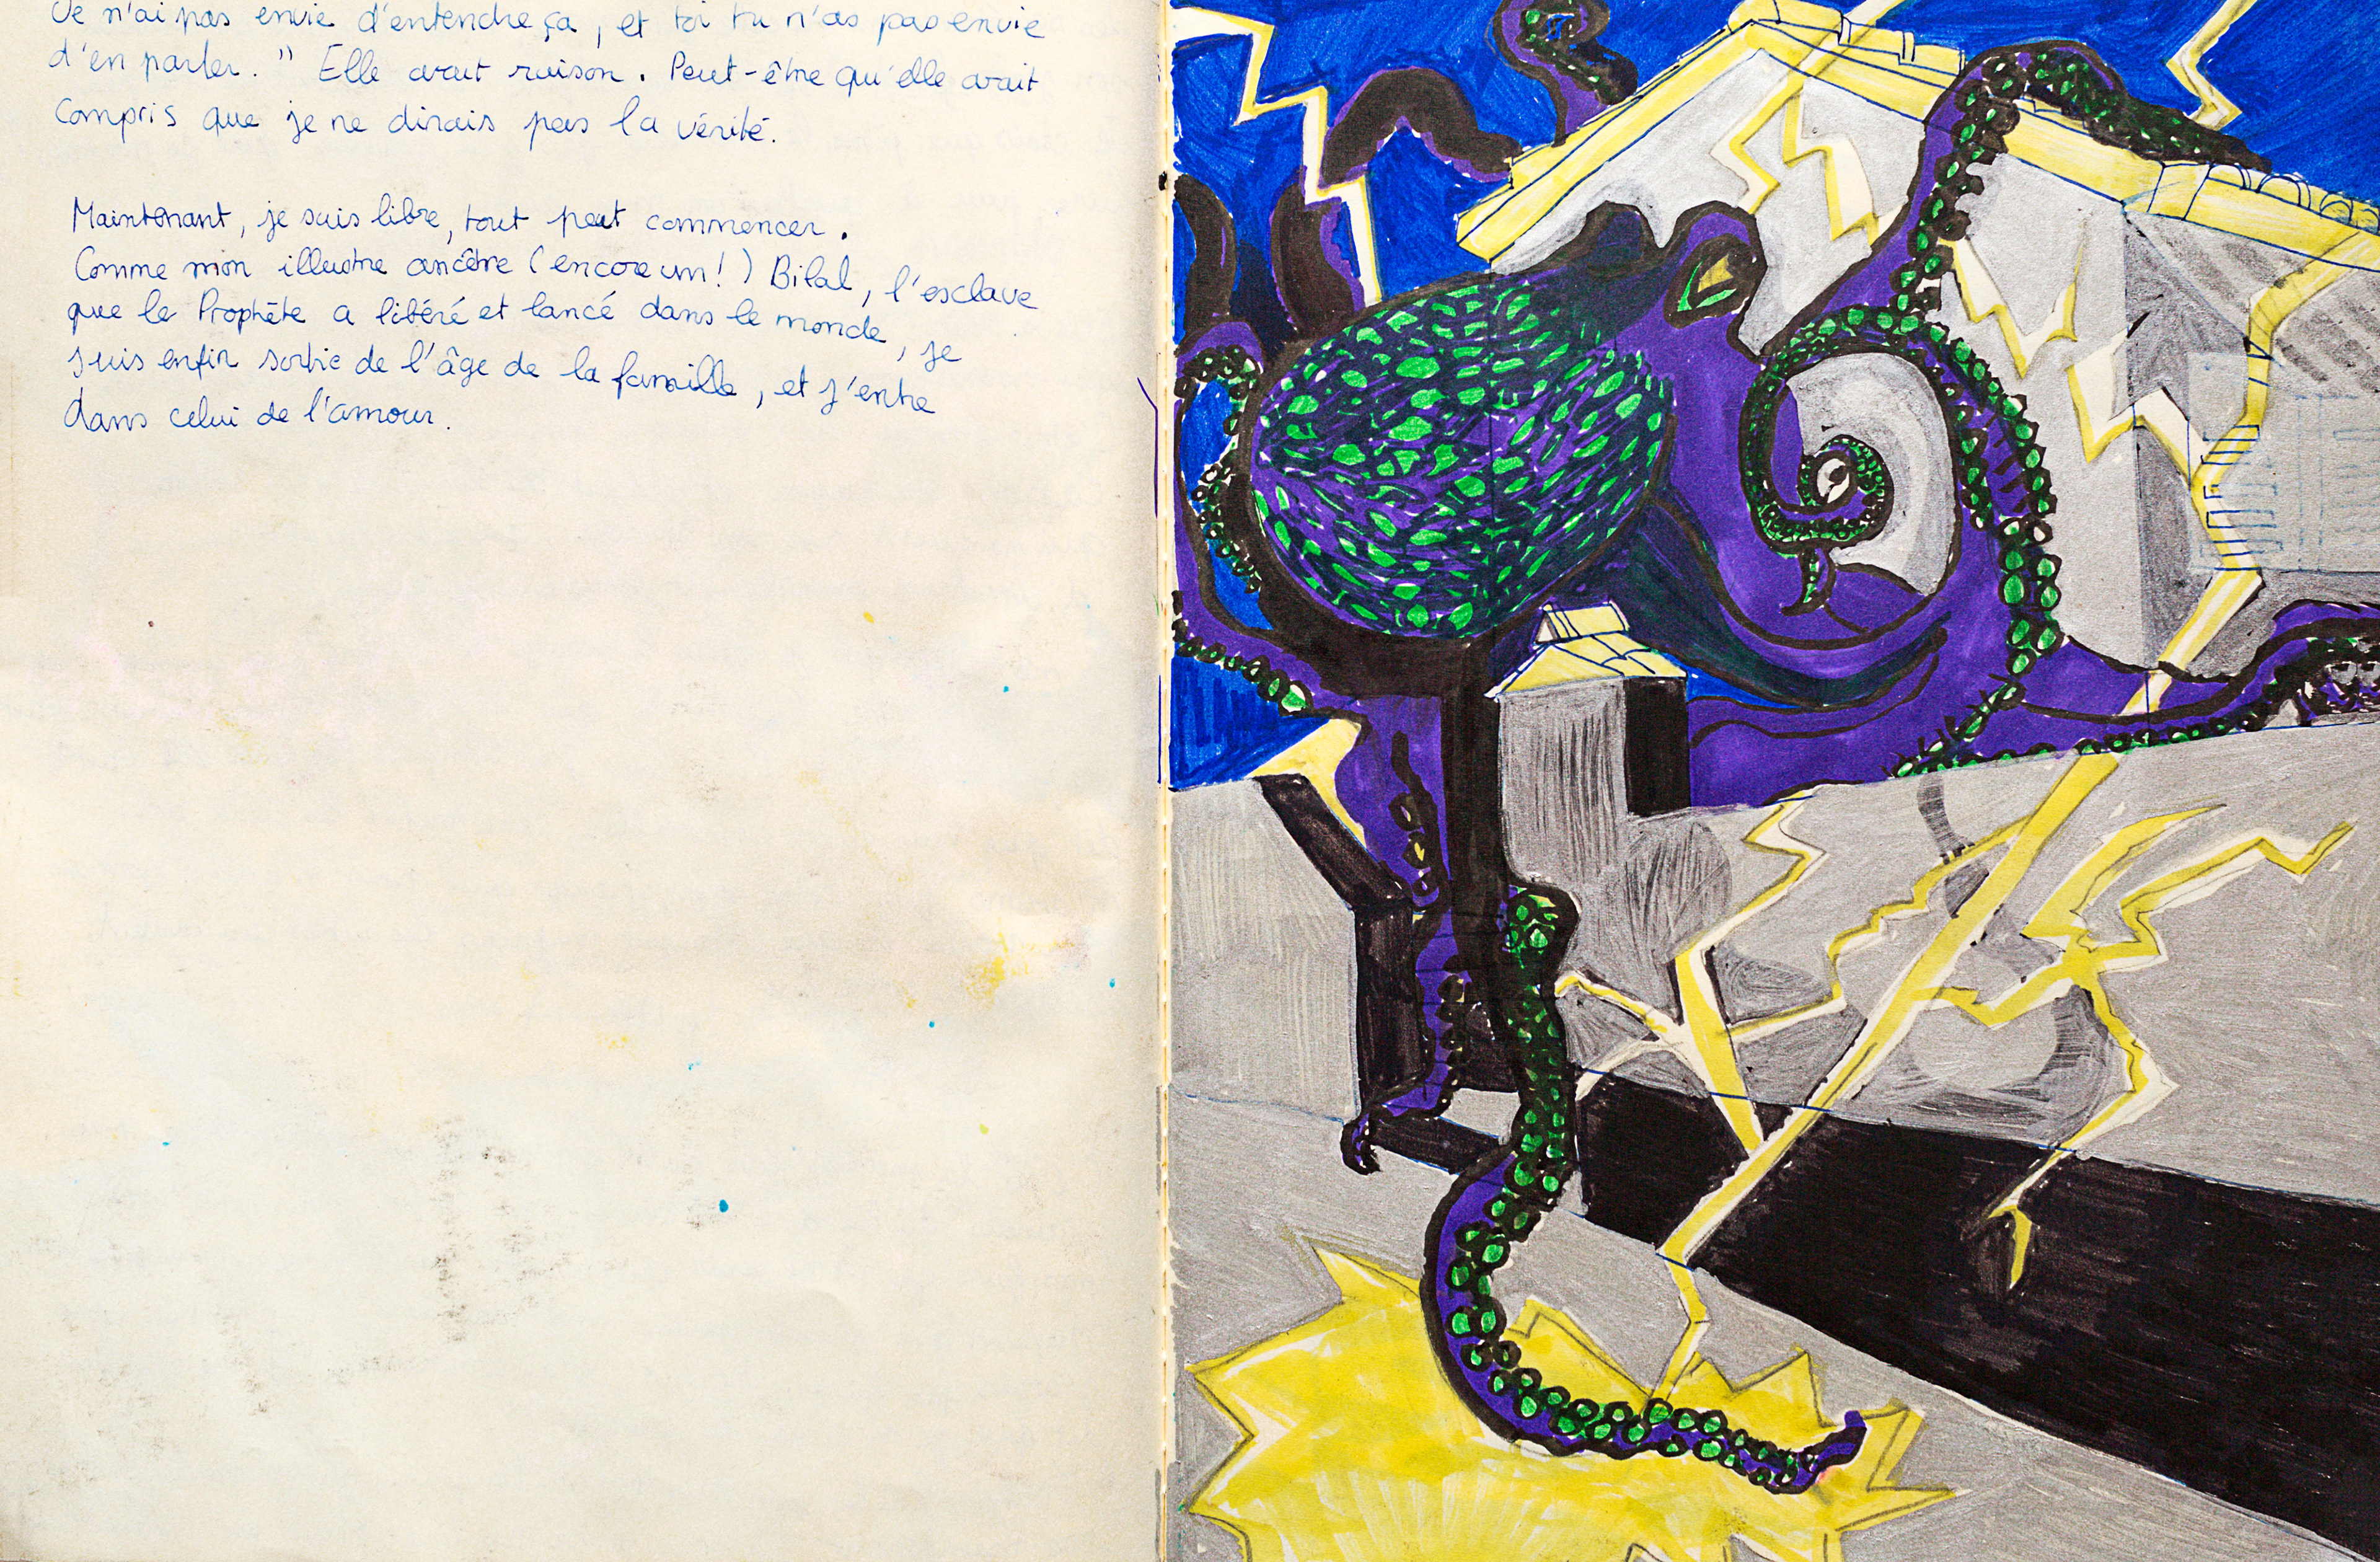 Je n'ai pas envie d'entendre ça, et toi tu n'as pas envie
d'en parler." Elle avait raison. Peut-être qu'elle avait
compris que je ne dirais pas la vérité.
Maintenant, je suis libre, tout peut commencer.
Comme mon illustre ancêtre (encore un!) Bilal, l'esclave
que le Prophète a libéré et lancé dans le monde, je
suis enfin sortie de l'âge de la famille, et j'entre
dans celui de l'amour.